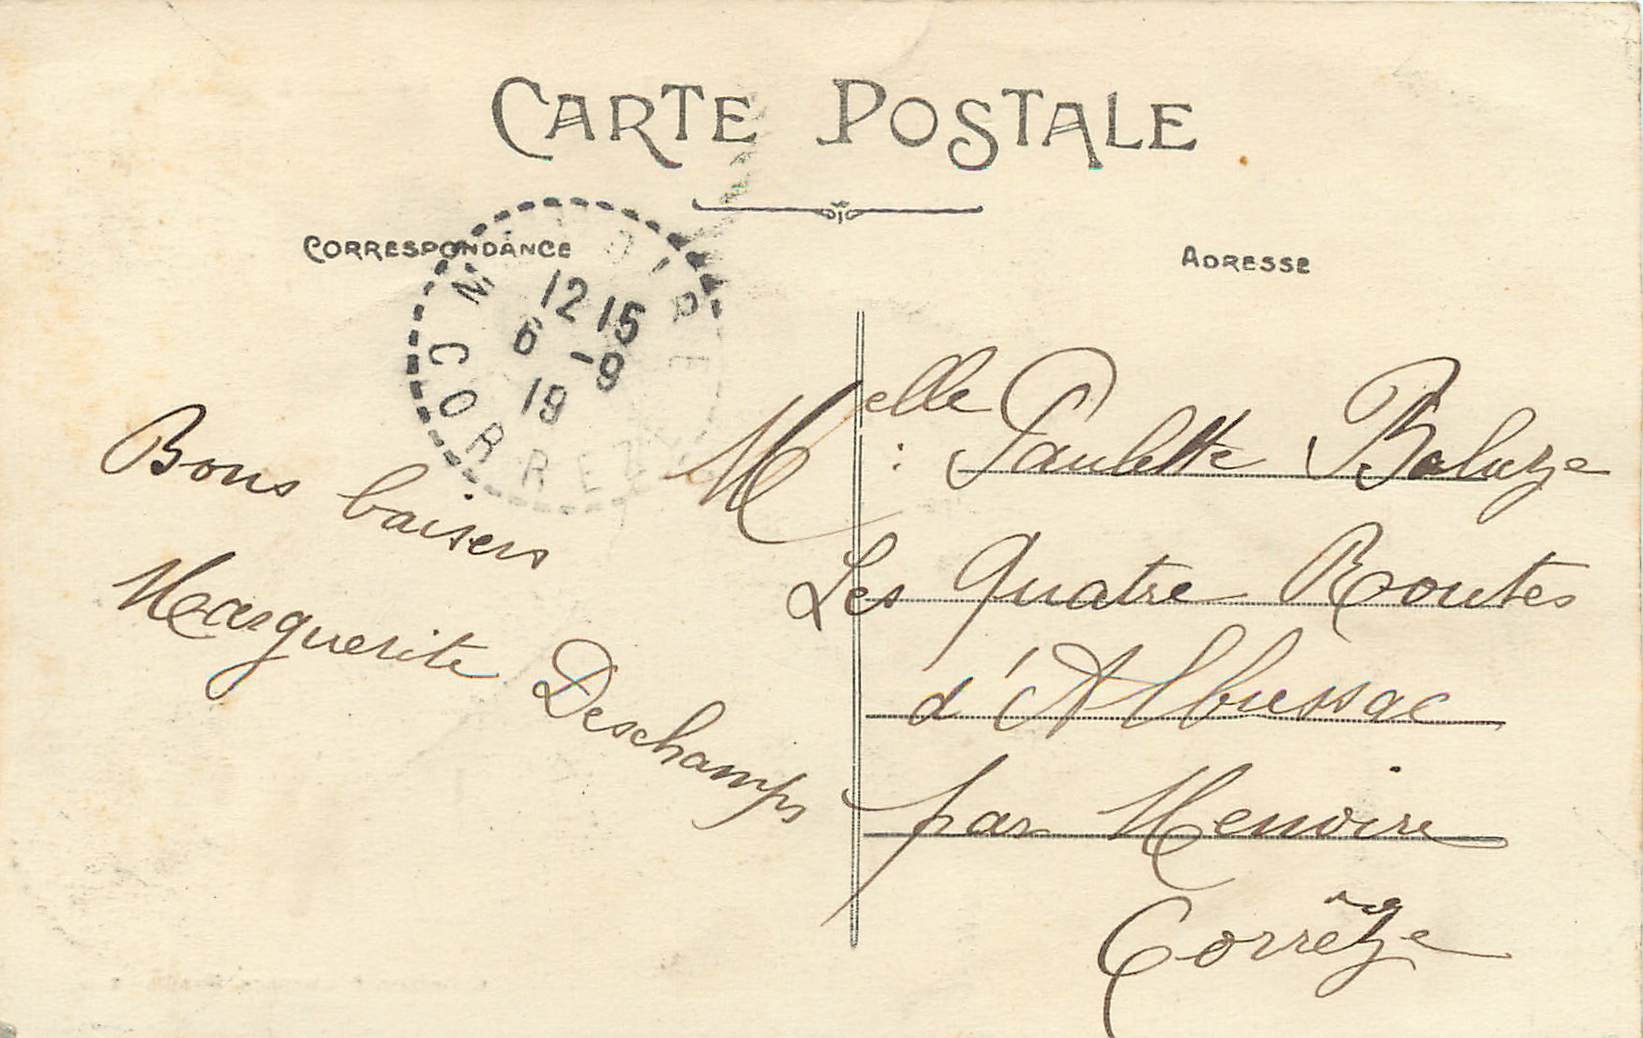 CARTE POSTALE
CORRESPONDANCE
ADRESSE
12 15
6 -9
19
CORREZE
Bons baisers
Marguerite Deschamps
Melle : Paulette Baluze
Les Quatre Routes
d'Albussac
par Menoire
Corrèze